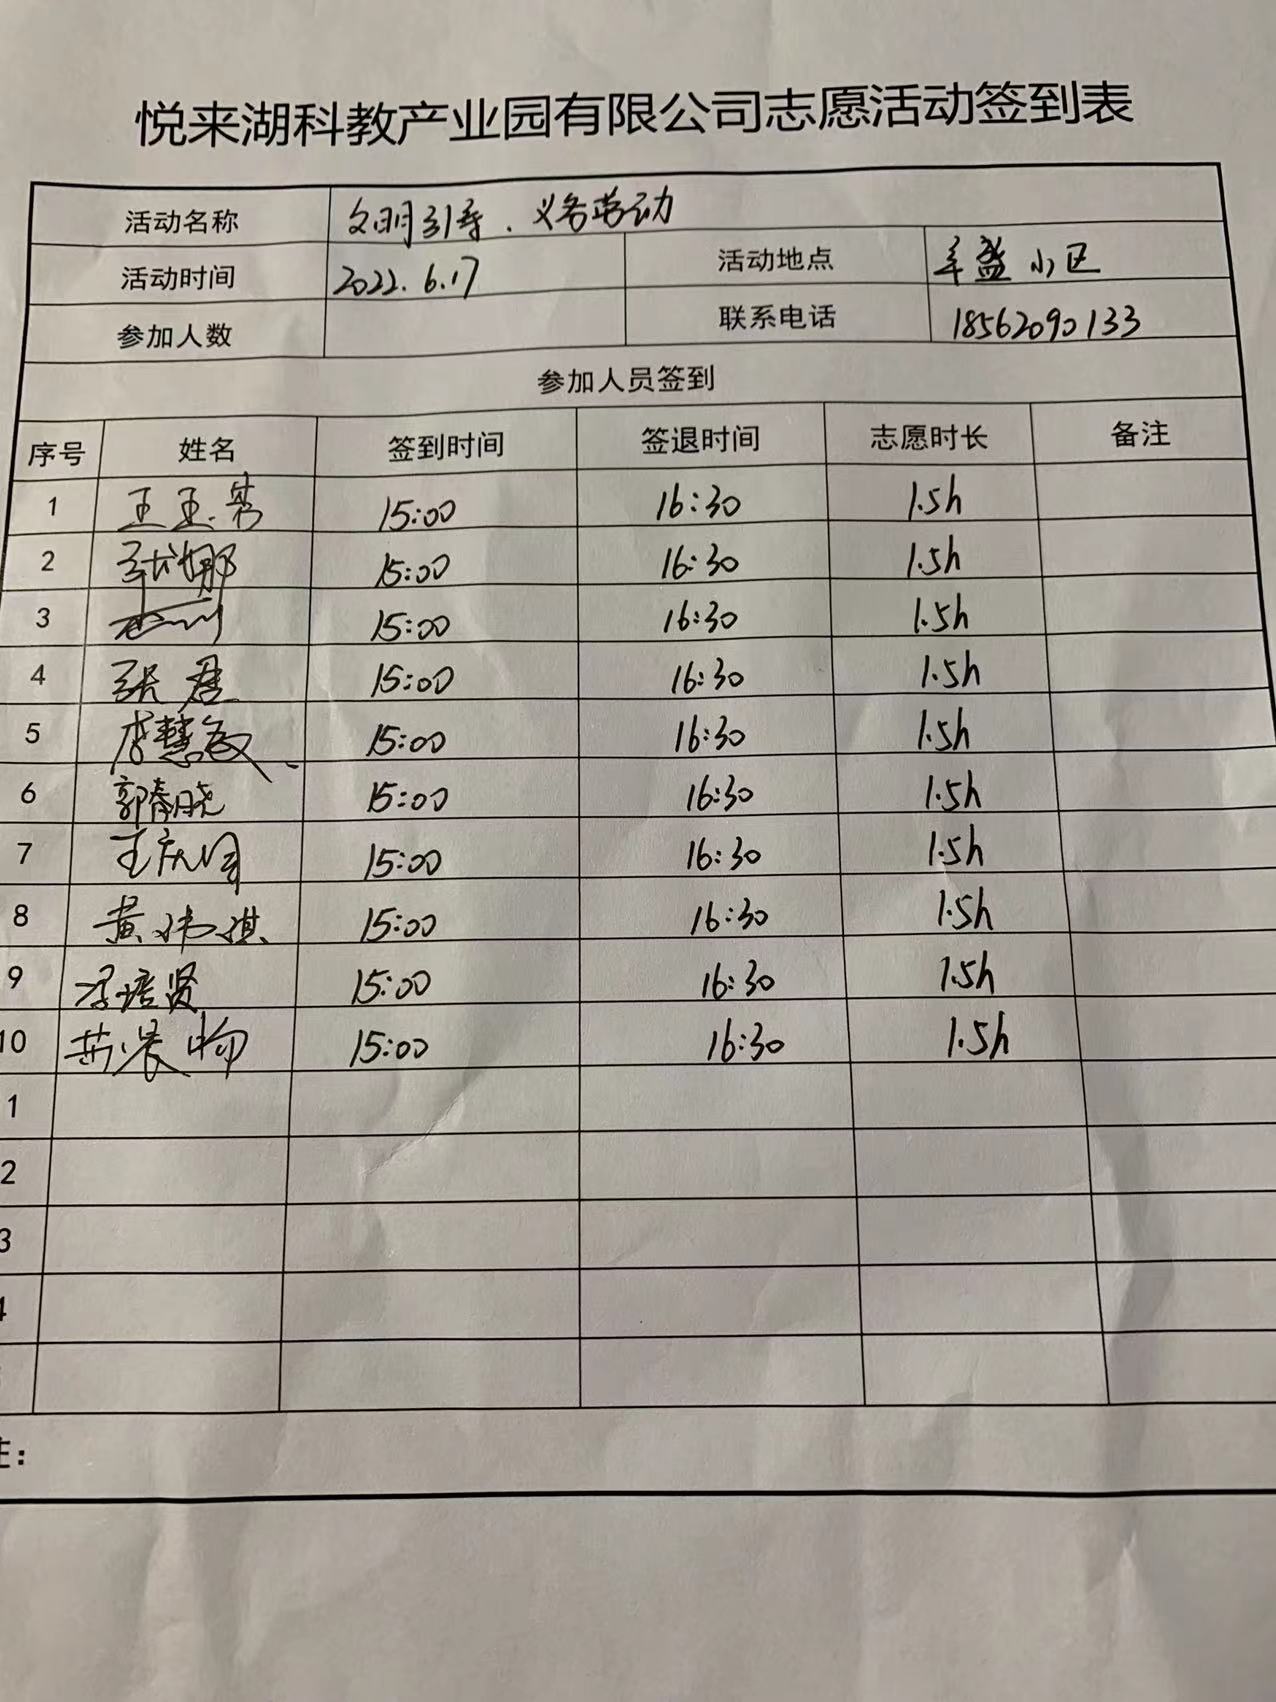 悦来湖科教产业园有限公司志愿活动签到表
活动名称 文明引导、义务劳动
活动时间 2022.6.17 活动地点 丰盛小区
参加人数 联系电话 18562090133
参加人员签到
序号 姓名 签到时间 签退时间 志愿时长 备注
1 15:00 16:30 1.5h
2 张娜 15:00 16:30 1.5h
3 15:00 16:30 1.5h
4 张君 15:00 16:30 1.5h
5 李慧敏 15:00 16:30 1.5h
6 郭春晓 15:00 16:30 1.5h
7 15:00 16:30 1.5h
8 黄祎祺 15:00 16:30 1.5h
9 15:00 16:30 1.5h
10 15:00 16:30 1.5h
1
2
3
4
注：